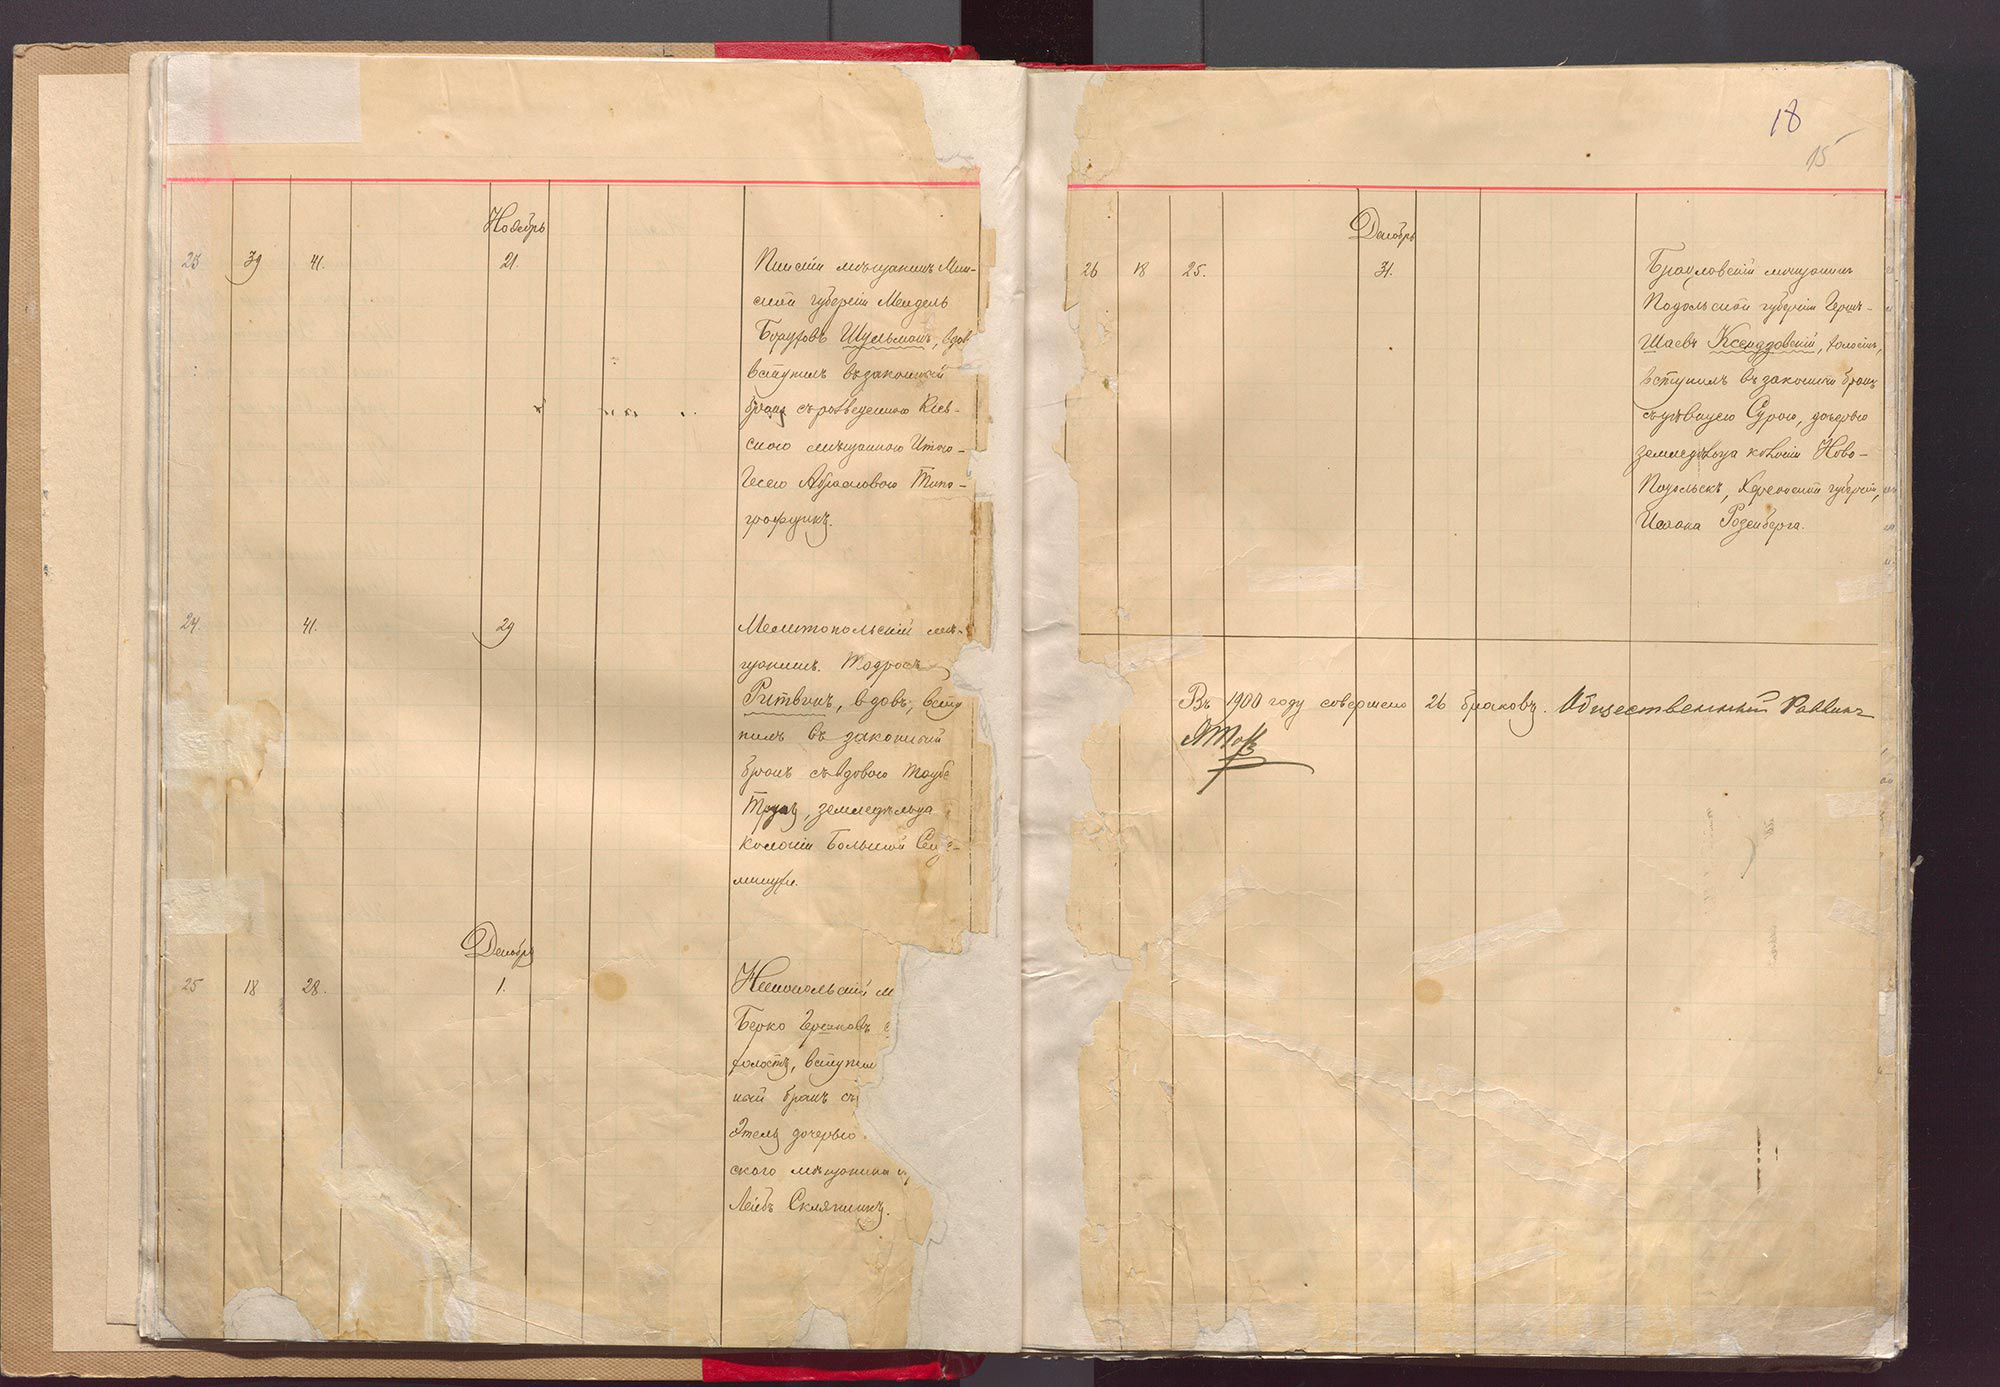 Ноябрь
23 39 41. 21.
Пинскій мѣщанинъ Мин-
ской губерніи Мендель
Боруховъ Шульманъ, вдов
вступилъ въ законный
бракъ съ разведенною Кіев-
скою мѣщанкою Итою-
Гесею Абрамовою Типо-
графщикъ.
24. 41. 29
Мелитопольскій мѣ-
щанинъ. Тодросъ
Ритвинъ, вдовъ, всту
пилъ въ законный
бракъ съ вдовою Таубе
земледѣльца
колоніи Большой Сейде-
минухи.
Декабрь
25 18 28. 1.
Никопольскій м
Берко Гершковъ
холостъ, вступил
ный бракъ съ
Этель дочерью
скаго мѣщанина
Лейбъ Скляникъ.
18
15
Декабрь
26 18 25. 31.
Браиловскій мѣщанинъ
Подольской губерніи Герш-
Шаевъ Ксендзовскій, холостъ,
вступилъ въ законный бракъ
съ дѣвицею Сурою, дочерью
земледѣльца колоніи Ново-
Подольскъ, Херсонской губерніи,
Исаака Розенберга.
Въ 1900 году совершено 26 браковъ. Общественный Раввинъ